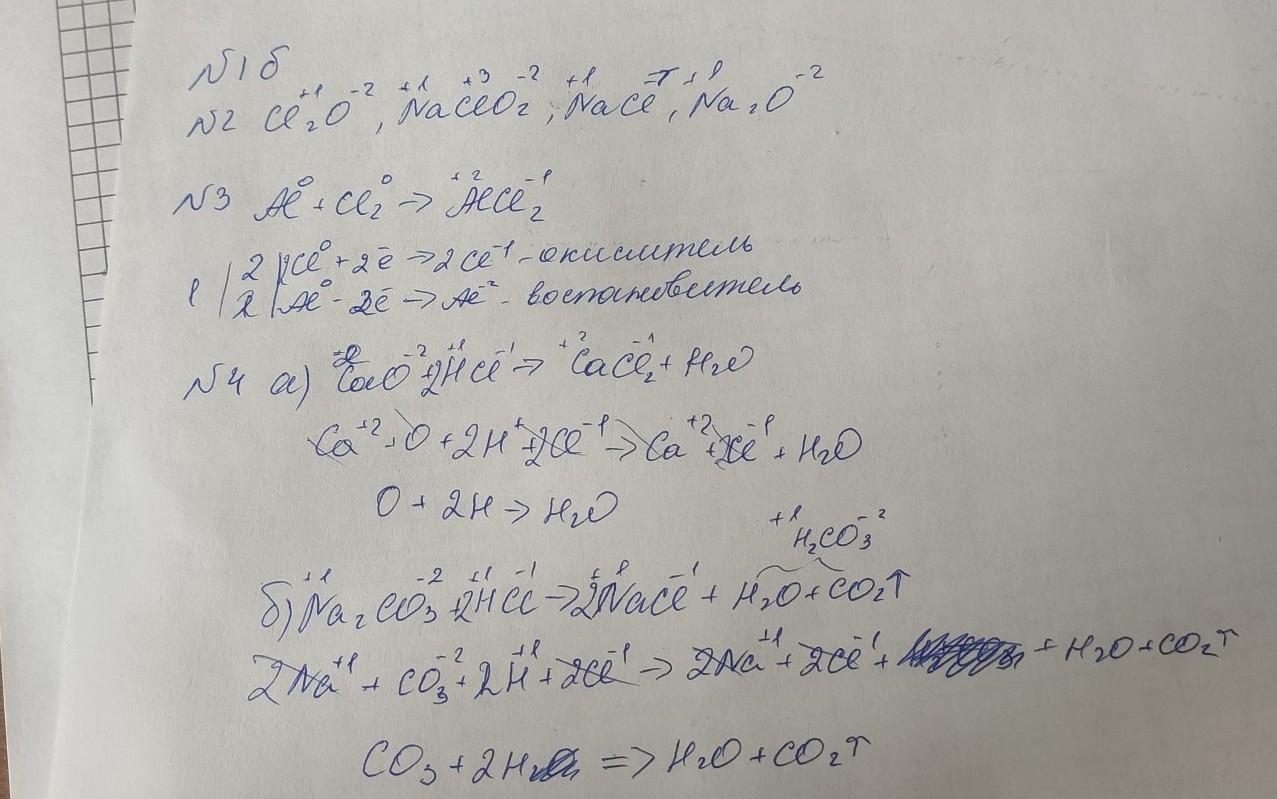 №1 б
№2 Cl₂⁺¹O⁻², Na⁺¹Cl⁺³O₂⁻², Na⁺¹Cl⁻¹, Na₂⁺¹O⁻²
№3 Al⁰ + Cl₂⁰ → Al⁺²Cl₂⁻¹
2 | 2Cl⁰ + 2ē → 2Cl⁻¹ - окислитель
1 | 2 | Al⁰ - 2ē → Al² - востановитель
№4 а) CaO⁻² + 2H⁺¹Cl⁻¹ → Ca⁺²Cl₂⁻¹ + H₂O
Ca⁺² + O + 2H⁺ + 2Cl⁻¹ → Ca⁺² + 2Cl⁻¹ + H₂O
O + 2H → H₂O
H₂⁺¹CO₃⁻²
б) Na₂⁺¹CO₃⁻² + 2H⁺¹Cl⁻¹ → 2Na⁺¹Cl⁻¹ + H₂O + CO₂↑
2Na⁺¹ + CO₃⁻² + 2H⁺¹ + 2Cl⁻¹ → 2Na⁺¹ + 2Cl⁻¹ + + H₂O + CO₂↑
CO₃ + 2H => H₂O + CO₂↑